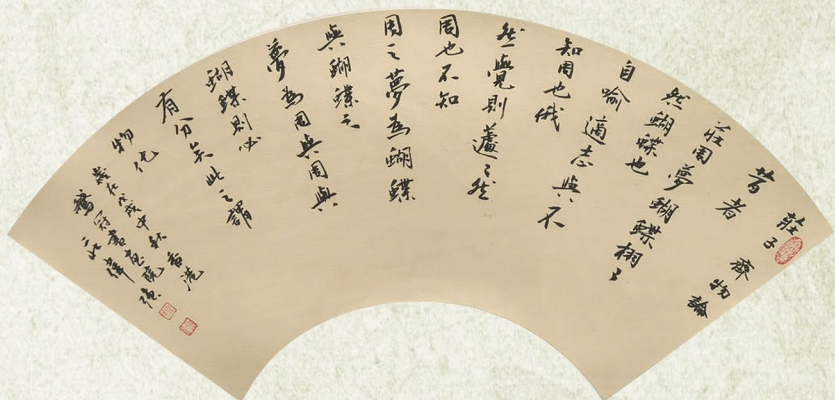 莊子齊物論
昔者
莊周夢蝴蝶栩々
然蝴蝶也
自喻適志與不
知周也俄
然覺則蘧々然
周也不知
周之夢為蝴蝶
與蝴蝶之
夢為周與周與
蝴蝶則必
有分矣此之謂
物化
歲在戊戌中秋香港
冠書畫院
偉強